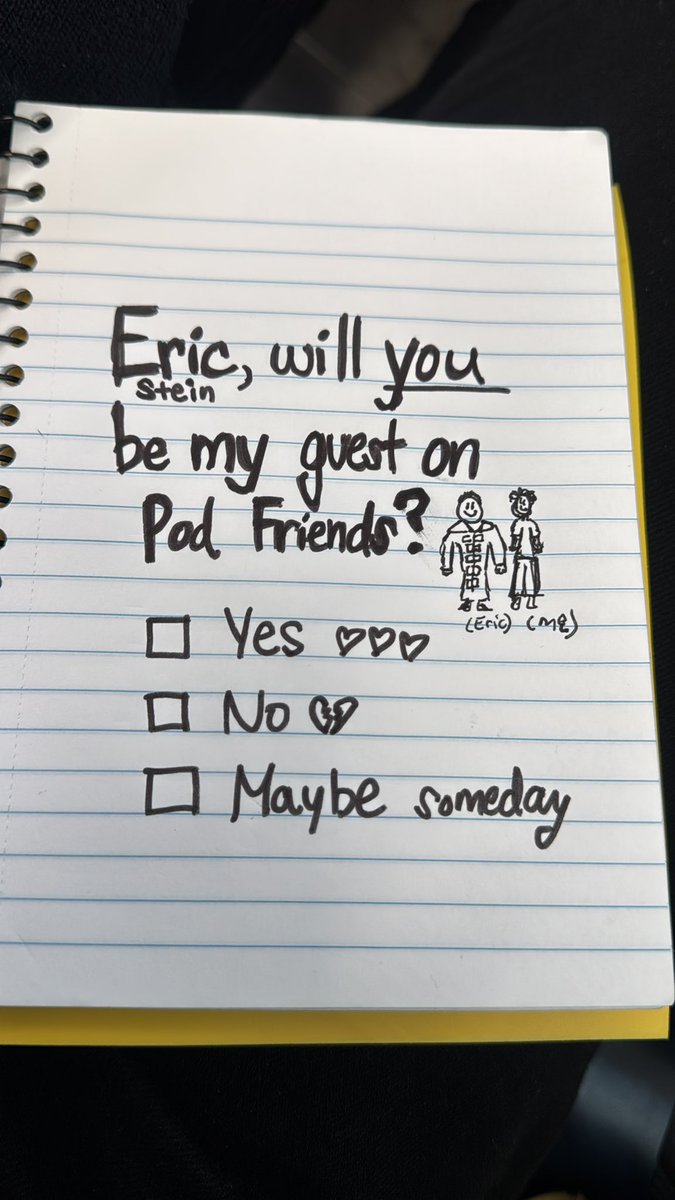 Eric, will you
Stein
be my guest on
Pod Friends?
(Eric) (ME)
Yes
No
Maybe someday